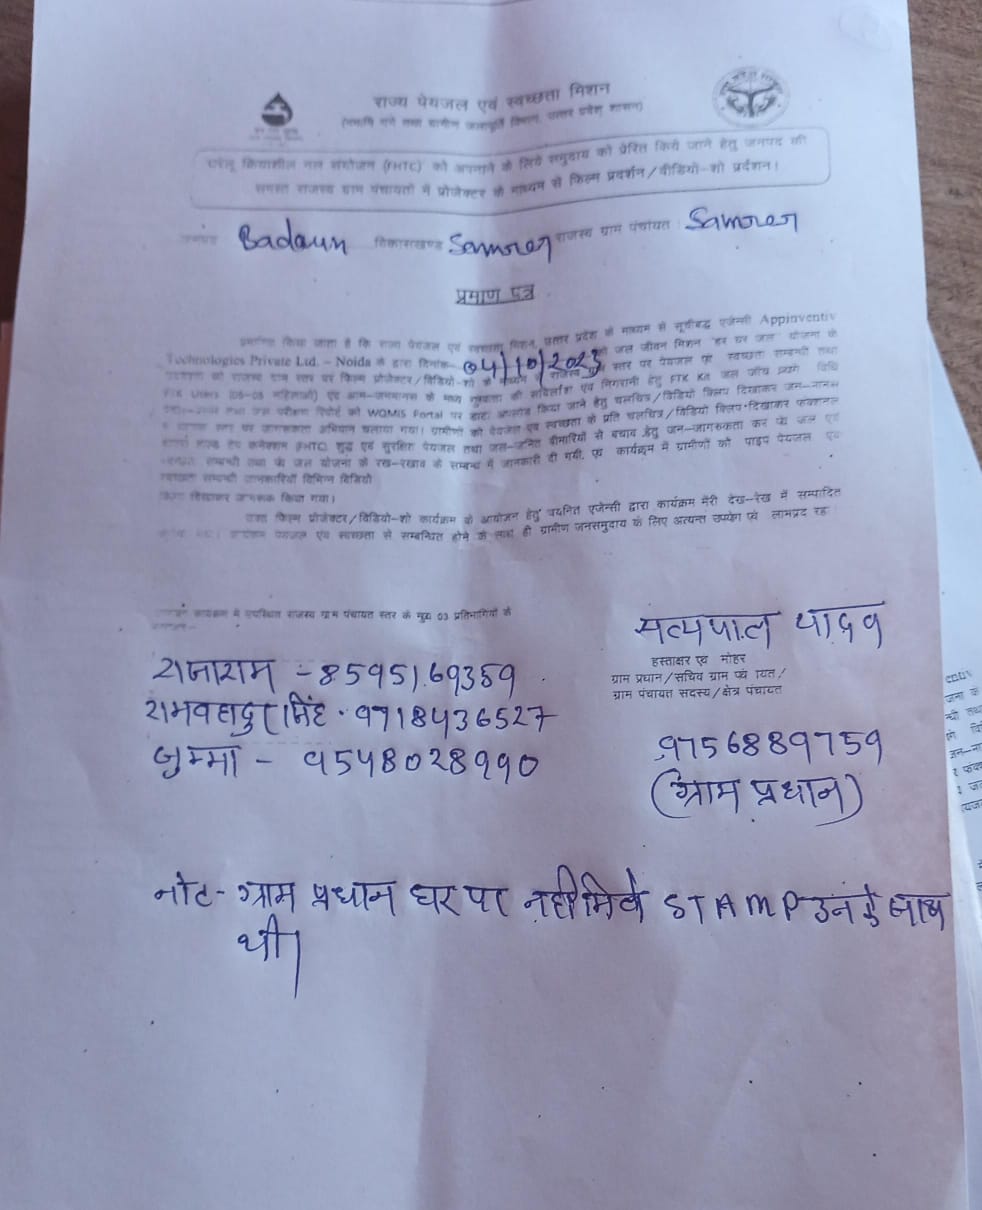 राज्य पेयजल एवं स्वच्छता मिशन
(नमामि गंगे तथा ग्रामीण जलापूर्ति विभाग, उत्तर प्रदेश शासन)
घरेलू क्रियाशील नल संयोजन (FHTC) को अपनाने के लिये समुदाय को प्रेरित किये जाने हेतु जनपद की
समस्त राजस्व ग्राम पंचायतों में प्रोजेक्टर के माध्यम से फिल्म प्रदर्शन/वीडियो-शो प्रर्दशन।
जनपद Badaun विकासखण्ड राजस्व ग्राम पंचायत :
प्रमाण पत्र
प्रमाणित किया जाता है कि राज्य पेयजल एवं स्वच्छता मिशन, उत्तर प्रदेश के माध्यम से सूचीबद्ध एजेन्सी Appinventiv
Technologies Private Ltd. – Noida के द्वारा दिनांक 04/10/2023 को जल जीवन मिशन "हर घर जल" योजना के
राजस्व ग्राम स्तर पर फिल्म प्रोजेक्टर/विडियो-शो के माध्यम स्तर पर पेयजल एवं स्वच्छता सम्बन्धी तथा
FTK Users महिलाओं) एवं आम-जनमानस के मध्य गुणवत्ता की एवं निगरानी हेतु FTK Kit जल जाँच विधि
तथा जल परीक्षण रिपोर्ट को WQMIS Portal पर डाटा अपलोड किया जाने हेतु चलचित्र/विडियो क्लिप दिखाकर जन-मानस
स्तर पर जागरूकता अभियान चलाया गया। ग्रामीणों को पेयजल एवं स्वच्छता के प्रति चलचित्र/विडियो क्लिप दिखाकर
टेप कनेक्शन (FHTC) शुद्ध एवं सुरक्षित पेयजल तथा जल-जनित बीमारियों से बचाव हेतु जन-जागरुकता कर जल एवं
सम्बन्धी तथा जल योजना के रख-रखाव के सम्बन्ध में जानकारी दी गयी, एवं कार्यक्रम में ग्रामीणों को पाइप पेयजल एवं
स्वच्छता सम्बन्धी जानकारियाँ विभिन्न विडियो
दिखाकर जागरूक किया गया।
उक्त फिल्म प्रोजेक्टर/विडियो-शो कार्यक्रम के आयोजन हेतु चयनित एजेन्सी द्वारा कार्यक्रम मेरी देख-रेख में सम्पादित
कार्यक्रम पेयजल एवं स्वच्छता से सम्बन्धित होने के साथ ही ग्रामीण जनसमुदाय के लिए अत्यन्त उपयोग एवं लाभप्रद रहा
कार्यक्रम में उपस्थित राजस्व ग्राम पंचायत स्तर के मुख्य 03 प्रतिभागियों के
सत्यपाल यादव
हस्ताक्षर एवं मोहर
ग्राम प्रधान/सचिव ग्राम पंचायत/
ग्राम पंचायत सदस्य/क्षेत्र पंचायत
राजाराम - 8595169359
रामबहादुर सिंह - 9718436527
जुम्मा - 9548028990
9756889759
(ग्राम प्रधान)
नोट- ग्राम प्रधान घर पर नही मिले STAMP उनके साथ
थी।